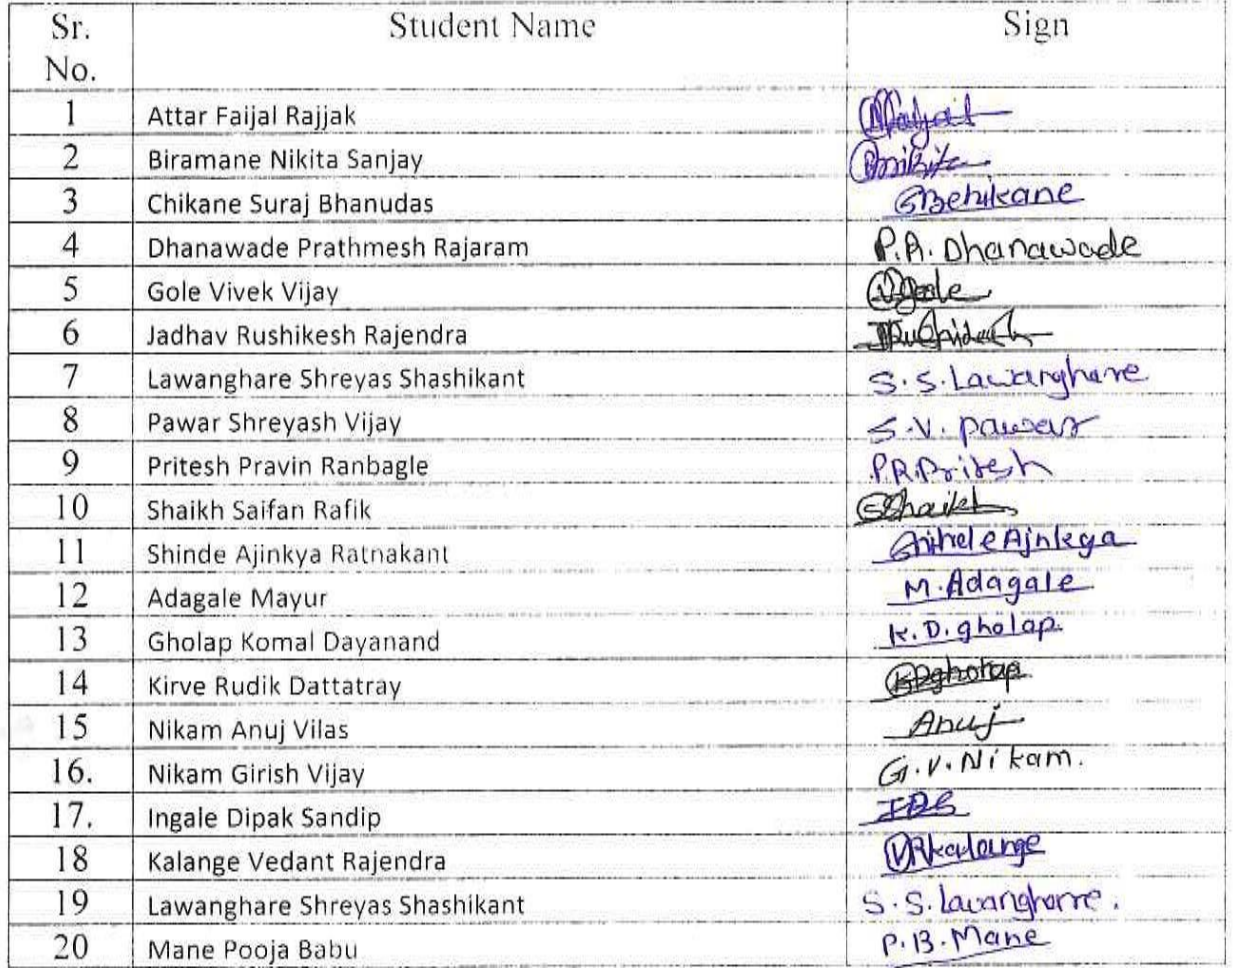 Sr. No. Student Name Sign
1 Attar Faijal Rajjak
2 Biramane Nikita Sanjay
3 Chikane Suraj Bhanudas
4 Dhanawade Prathmesh Rajaram P.A. Dhanawade
5 Gole Vivek Vijay
6 Jadhav Rushikesh Rajendra
7 Lawanghare Shreyas Shashikant S.S. Lawanghare
8 Pawar Shreyash Vijay S.V. Pawar
9 Pritesh Pravin Ranbagle P.R. Pritesh
10 Shaikh Saifan Rafik
11 Shinde Ajinkya Ratnakant
12 Adagale Mayur M. Adagale
13 Gholap Komal Dayanand K.D. gholap.
14 Kirve Rudik Dattatray
15 Nikam Anuj Vilas Anuj
16. Nikam Girish Vijay G.V. Nikam.
17. Ingale Dipak Sandip
18 Kalange Vedant Rajendra VRKalange
19 Lawanghare Shreyas Shashikant S.S. Lawangharre.
20 Mane Pooja Babu P.B. Mane